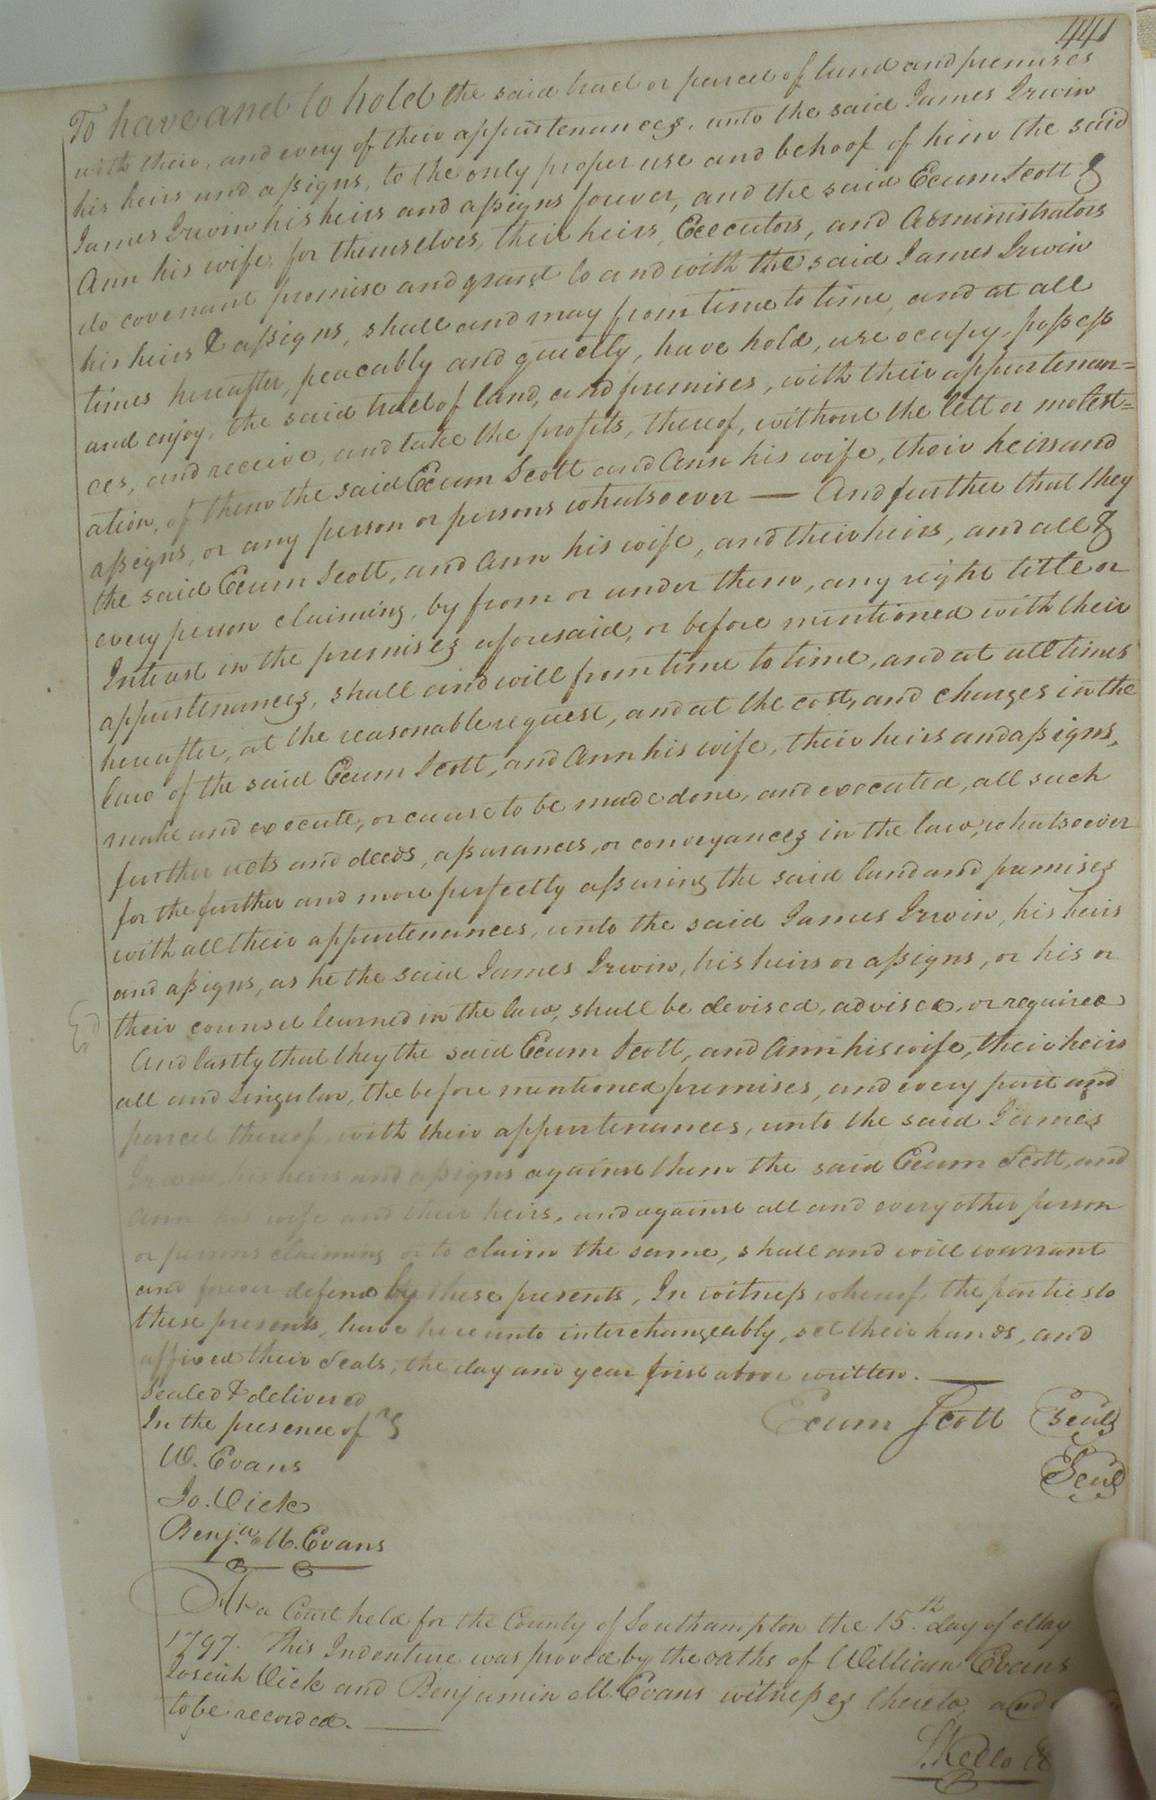 441
To have and to hold the said tract or parcel of land and premises
with their, and every of their appurtenances, unto the said James Irwin
his heirs and assigns, to the only proper use and behoof of him the said
James Irwin his heirs and assigns forever, and the said Exum Scott &
Ann his wife, for themselves, their heirs, Executors, and Administrators
do covenant promise and grant to and with the said James Irwin
his heirs & assigns, shall and may from time to time, and at all
times hereafter, peacably and quietly, have hold, use ocupy, possess
and enjoy, the said tract of land, and premises, with their appurtenan=
ces, and receive, and take the profits, thereof, without the lett or molest=
ation, of them the said Exum Scott and Ann his wife, their heirs and
assigns, or any person or persons whatsoever — And further that they
the said Exum Scott, and Ann his wife, and their heirs, and all &
every person claiming, by from or under them, any right title or
Interest in the premises aforesaid, or before mentioned with their
appurtenances, shall and will from time to time, and at all times
hereafter, at the reasonable request, and at the cost, and charges in the
law of the said Exum Scott, and Ann his wife, their heirs and assigns,
make and execute, or cause to be made done, and executed, all such
further acts and deeds, assurances, or conveyances in the law, whatsoever
for the further and more perfectly assuring the said land and premises
with all their appurtenances, unto the said James Irwin, his heirs
and assigns, as he the said James Irwin, his heirs or assigns, or his or
their counsel learned in the law, shall be devised, advised, or required
And lastly that they the said Exum Scott, and Ann his wife, their heirs
all and singular, the before mentioned premises, and every part and
parcel thereof, with their appurtenances, unto the said James
Irwin, his heirs and assigns against them the said Exum Scott, and
Ann his wife and their heirs, and against all and every other person
or persons claiming or to claim the same, shall and will warrant
and forever defend by these presents, In witness whereof, the parties to
these presents, have hereunto interchangeably, set their hands, and
affixed their Seals, the day and year first above written. —
Sealed & delivered
In the presence of
Exum Scott Seal
W. Evans
Seal
Jo. Vick
Benja. M. Evans
At a Court held for the County of Southampton the 15th. day of May
1797. This Indenture was proved by the oaths of William Evans
Josiah Vick and Benjamin M. Evans witnesses thereto, and
to be recorded. —
S. Kello